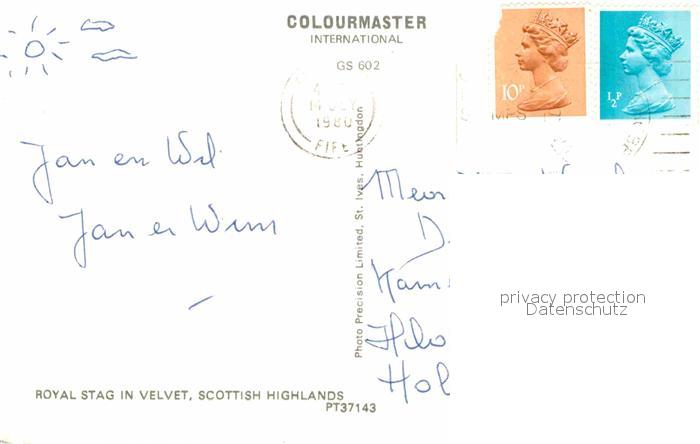 COLOURMASTER
INTERNATIONAL
GS 602
1980
FIFE
10P
½P
Jan en Wil
Jan en Wim
Photo Precision Limited, St. Ives, Huntingdon
Hol
privacy protection
Datenschutz
ROYAL STAG IN VELVET, SCOTTISH HIGHLANDS
PT37143